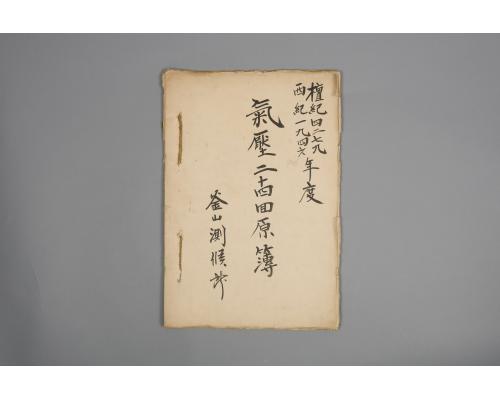 檀紀四二七九
西紀一九四六年度
氣壓二十四回原簿
釜山測候所